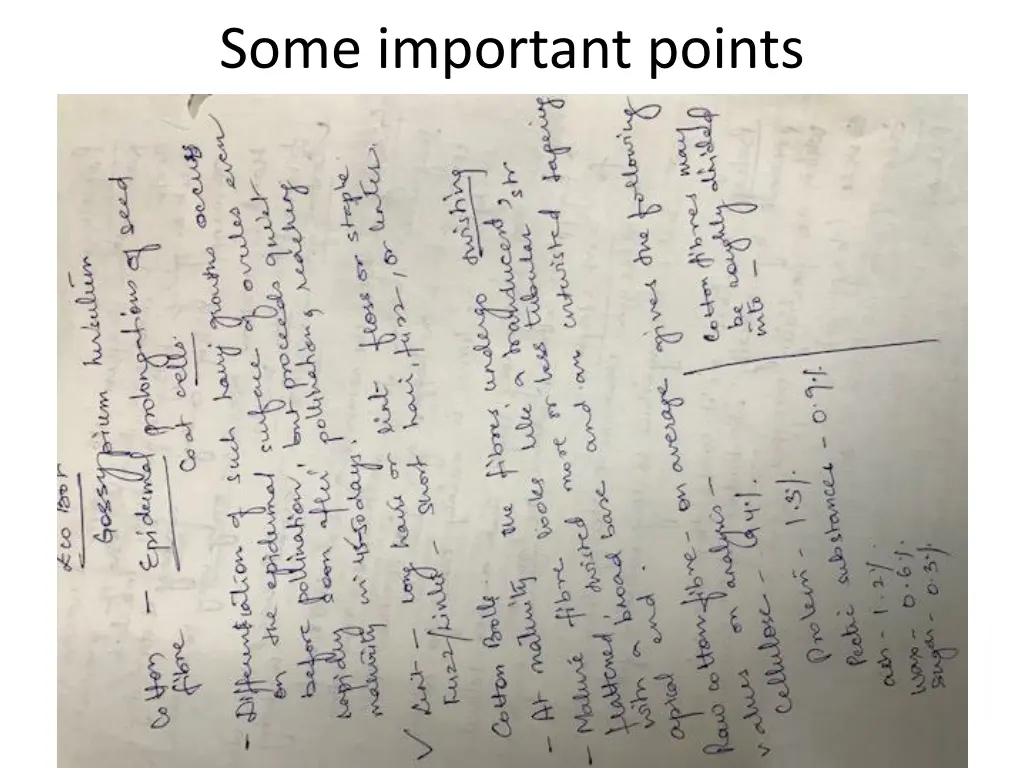 Some important points
Eco Bot
Gossypium herbatium
Cotton — Epidermal prolongations of seed
fibre coat cells.
- Differentiation of such hairy growths occurs
on the epidermal surface of ovules even
before pollination, but proceeds quiet
rapidly soon after pollination, reaching
maturity in 45-50 days.
✓ Lint — long hairs or lint floss or staple.
Fuzz/Linte — short hair, fuzz, or linter.
Cotton Bolls - the fibres undergo twisting
- At maturity looks like a
- Mature fibre more or less tubular str
flattened, twisted and an untwisted tapering
with a broad base
apical end.
Raw cotton fibre - on average gives the following
values on analysis —
Cellulose - 94%.
Protein - 1.3%.
Pectic substances - 0.9%
ash - 1.2%.
Wax - 0.6%.
Sugar - 0.3%.
Cotton fibres may
be roughly divided
into —